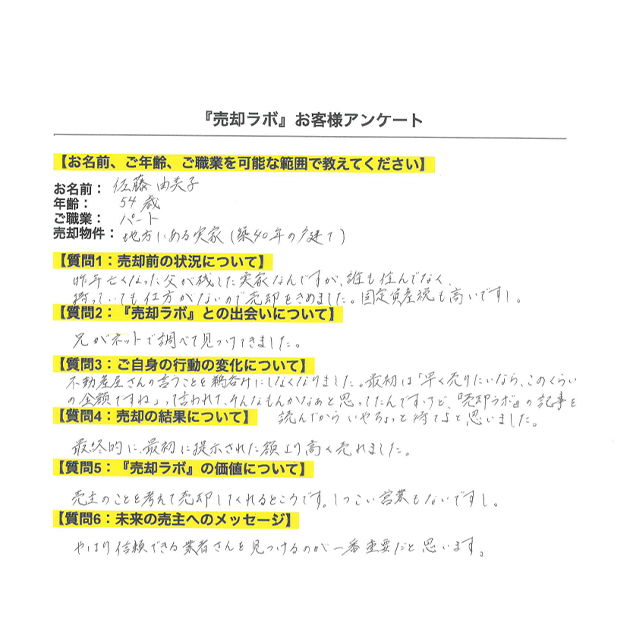 『売却ラボ』お客様アンケート
【お名前、ご年齢、ご職業を可能な範囲で教えてください】
お名前： 佐藤 由美子
年齢： 54歳
ご職業： パート
売却物件： 地方にある実家(築40年の戸建て)
【質問1：売却前の状況について】
昨年亡くなった父が残した実家なんですが、誰も住んでなく、
持っていても仕方がないので売却をきめました。固定資産税も高いですし。
【質問2：『売却ラボ』との出会いについて】
兄がネットで調べて見つけてきました。
【質問3：ご自身の行動の変化について】
不動産屋さんの言うことを鵜呑みにしなくなりました。最初は「早く売りたいなら、このくらい
の金額ですね」って言われて、そんなもんかなぁと思ってたんですけど、『売却ラボ』の記事を
読んでから いやちょっと待てよと思いました。
【質問4：売却の結果について】
最終的に、最初に提示された額より高く売れました。
【質問5：『売却ラボ』の価値について】
売主のことを考えて売却してくれるところです。しつこい営業もないですし。
【質問6：未来の売主へのメッセージ】
やはり信頼できる業者さんを見つけるのが一番重要だと思います。